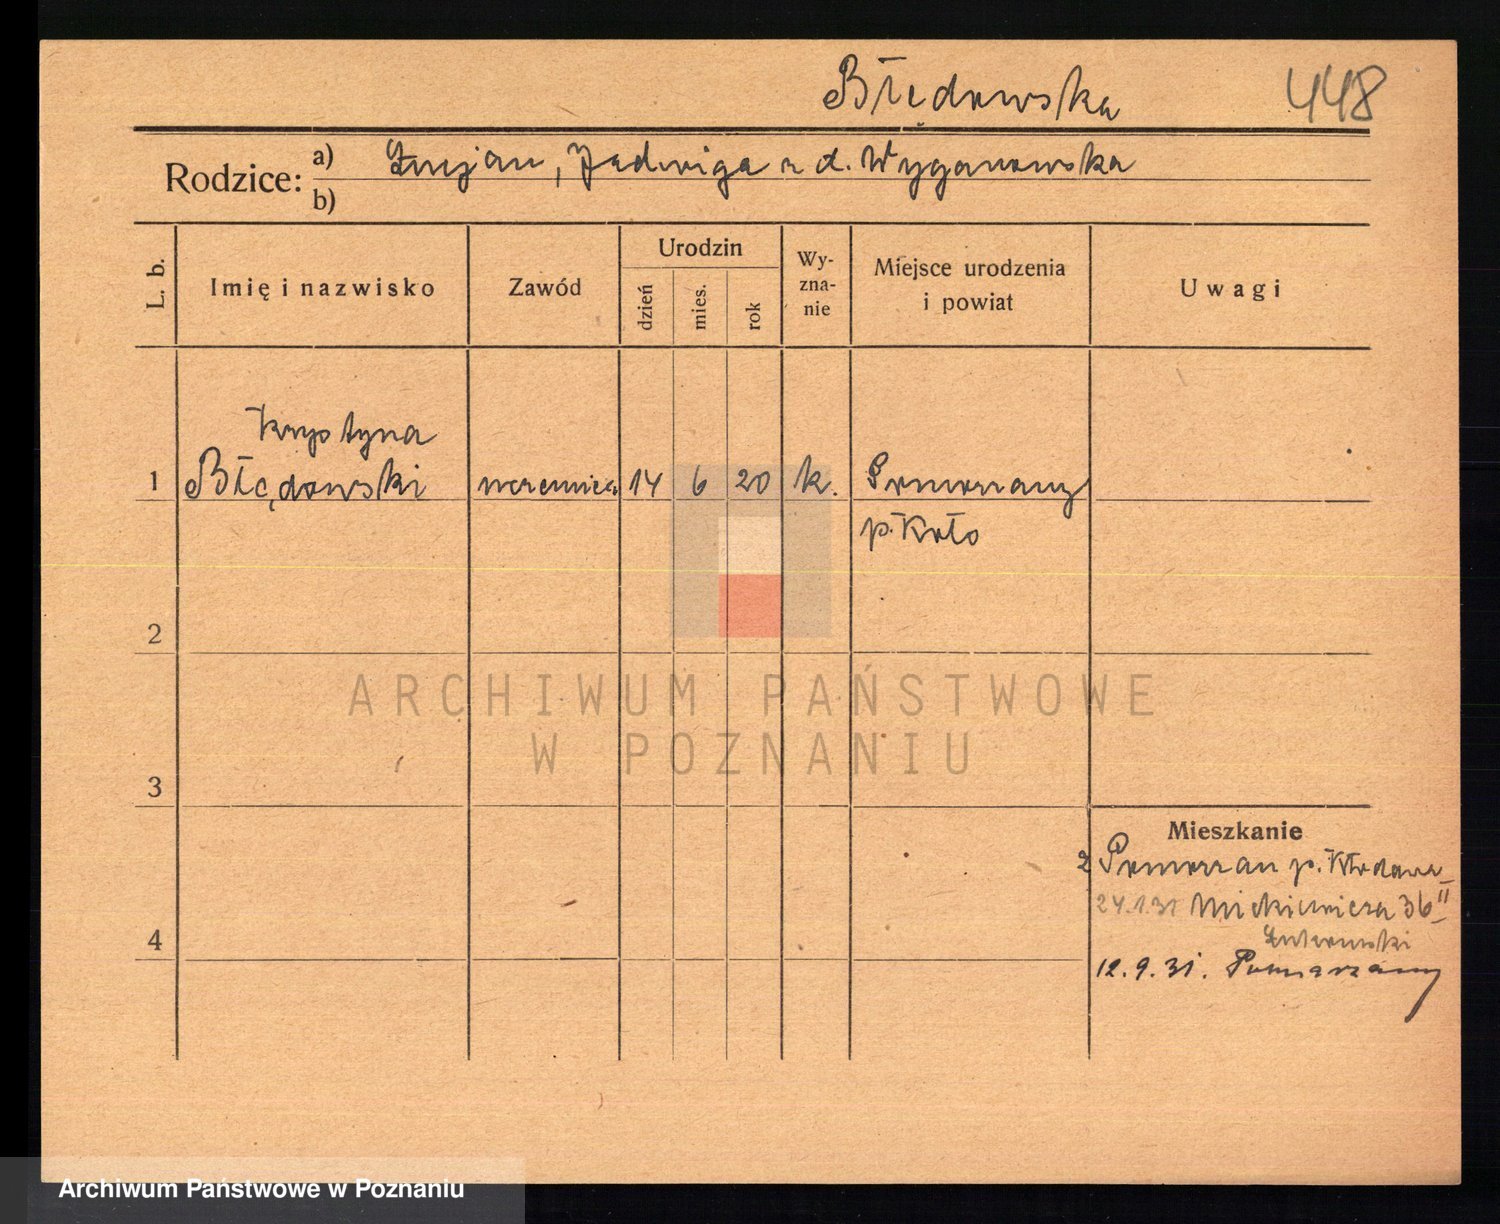 Błędowska
448
Rodzice: a) Lucjan, Jadwiga z d. Wyganowska
b)
L. b.
Imię i nazwisko
Zawód
Urodzin
dzień
mies.
rok
Wy-
zna-
nie
Miejsce urodzenia
i powiat
Uwagi
Krystyna
1 Błędowski uczennica 14 6 20 k. Pomorzany
p. Koło
2
3
4
Mieszkanie
z Pomorzan p. Kłodawa
24.1.31 Mickiewicza 36 II
12.9.31. Pomarzany
ARCHIWUM PAŃSTWOWE
W POZNANIU
Archiwum Państwowe w Poznaniu